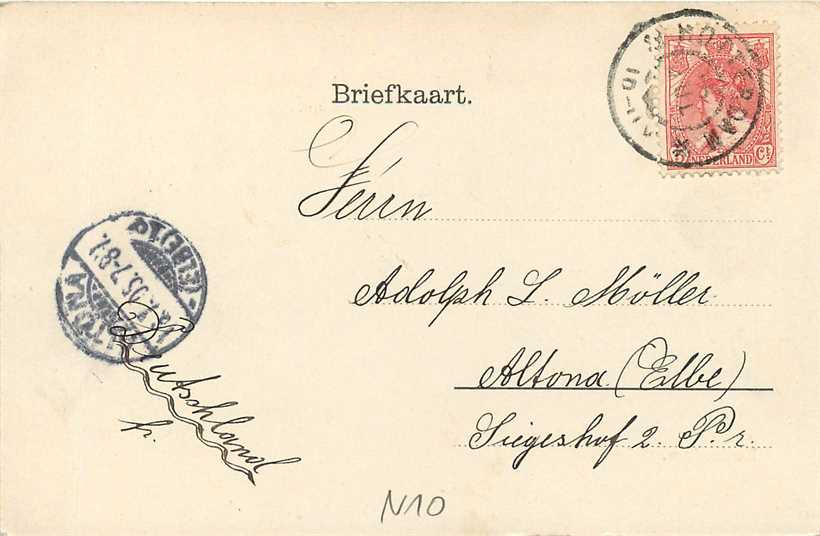 Briefkaart.
ROTTERDAM
5 Ct
NEDERLAND
Herrn
Adolph L. Möller
Altona (Elbe)
Siegeshof 2. P. r.
Deutschland
ALTONA (ELBE) 1
7-8 V.
N10